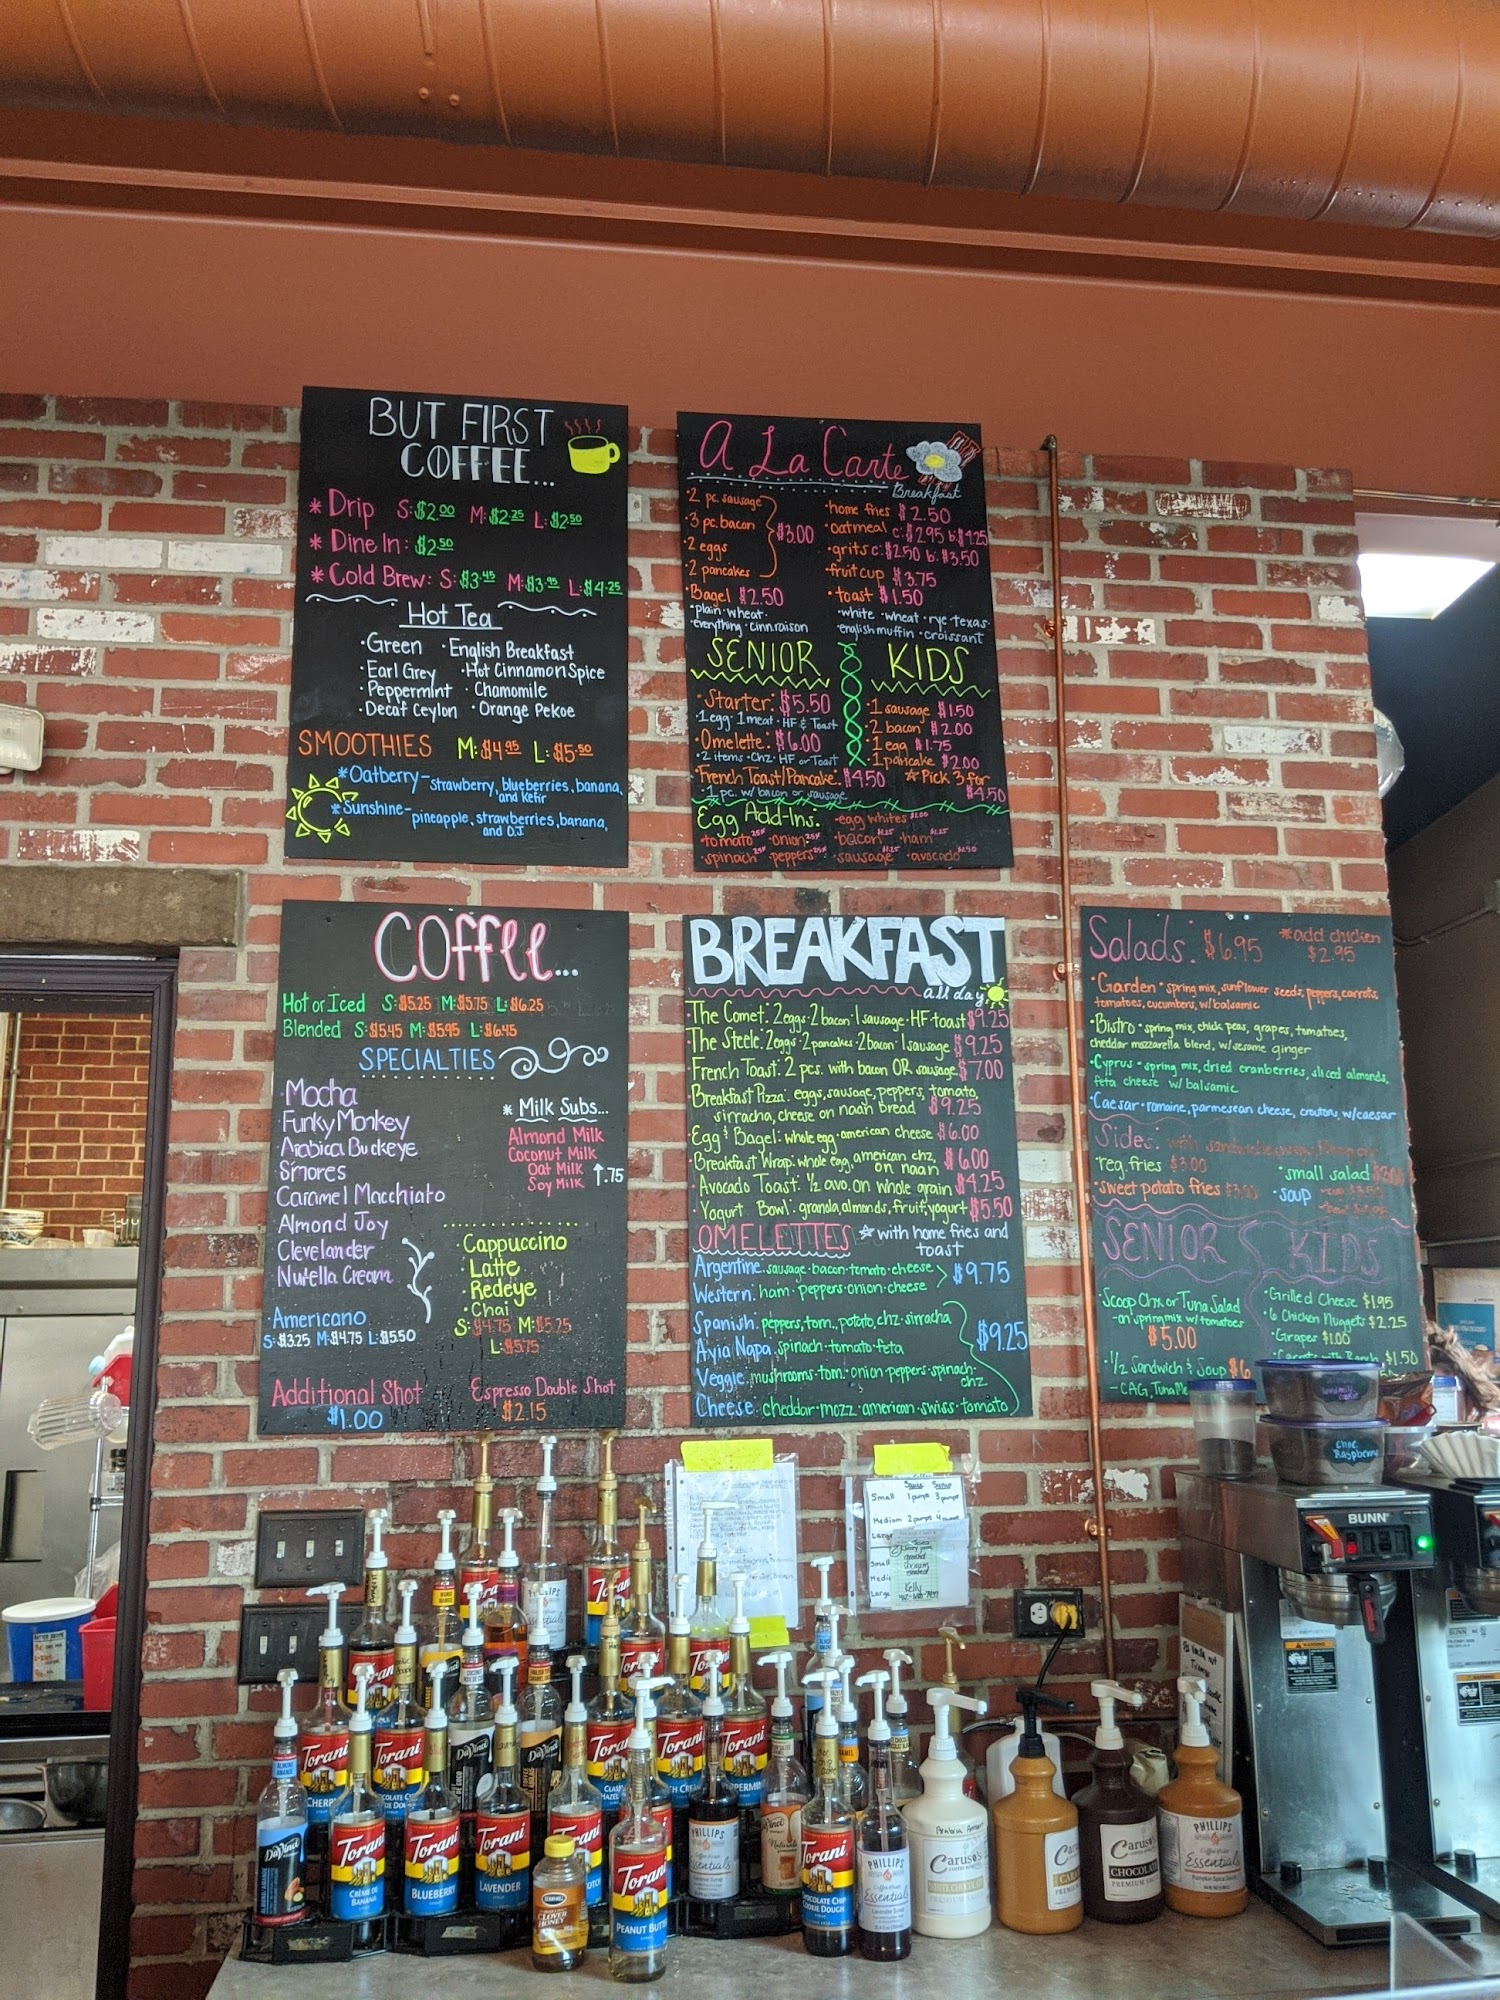 BUT FIRST
COFFEE...
* Drip S: $2.00 M: $2.25 L: $2.50
* Dine In: $2.50
* Cold Brew: S: $3.45 M: $3.95 L: $4.25
Hot Tea
• Green • English Breakfast
• Earl Grey • Hot Cinnamon Spice
• Peppermint • Chamomile
• Decaf Ceylon • Orange Pekoe
SMOOTHIES M: $4.95 L: $5.50
* Oatberry - strawberry, blueberries, banana,
and Kefir
* Sunshine - pineapple, strawberries, banana,
and O.J
A La Carte
Breakfast
• 2 pc. sausage
• 3 pc. bacon
• 2 eggs
• 2 pancakes
$3.00
• Bagel $2.50
• plain • wheat •
everything • cinnraison
• home fries $2.50
• oatmeal c: $2.95 b: $4.25
• grits c: $2.50 b: $3.50
• fruit cup $3.75
• toast $1.50
• white • wheat • rye texas •
english muffin • croissant
SENIOR
• Starter: $5.50
• 1 egg • 1 meat • HF & Toast
• Omelette: $6.00
• 2 items • Chz • HF or Toast
• French Toast/Pancake: $4.50
• 1 pc. w/ bacon or sausage
KIDS
• 1 sausage $1.50
• 2 bacon $2.00
• 1 egg $1.75
• 1 pancake $2.00
* Pick 3 for
$4.50
Egg Add-Ins: • egg whites $1.00
• tomato • onion • bacon • ham
• spinach • peppers • sausage • avocado
COffee...
Hot or Iced S: $5.25 M: $5.75 L: $6.25
Blended S: $5.45 M: $5.95 L: $6.45
SPECIALTIES
Mocha
Funky Monkey
Arabica Buckeye
S'mores
Caramel Macchiato
Almond Joy
Clevelander
Nutella Cream
* Milk Subs...
Almond Milk
Coconut Milk
Oat Milk
Soy Milk
↑.75
• Cappuccino
• Latte
• Redeye
• Chai
S: $4.75 M: $5.25
L: $5.75
Americano
S: $3.25 M: $4.75 L: $5.50
Additional Shot
$1.00
Espresso Double Shot
$2.15
BREAKFAST
all day
The Comet: 2 eggs • 2 bacon • 1 sausage • HF • toast $9.25
The Steele: 2 eggs • 2 pancakes • 2 bacon • 1 sausage $9.25
French Toast: 2 pcs. with bacon OR sausage $7.00
Breakfast Pizza: eggs, sausage, peppers, tomato,
sirracha, cheese on naan bread $9.25
Egg & Bagel: whole egg • american cheese $6.00
Breakfast Wrap: whole egg, american chz,
on naan $6.00
Avocado Toast: 1/2 avo. on whole grain $4.25
Yogurt Bowl: granola, almonds, fruit, yogurt $5.50
OMELETTES * with home fries and
toast
Argentine: sausage • bacon • tomato • cheese
Western: ham • peppers • onion • cheese
$9.75
Spanish: peppers, tom., potato, chz • sirracha
Ayia Napa: spinach • tomato • feta
Veggie: mushrooms • tom. • onion • peppers • spinach •
chz
Cheese: cheddar • mozz • american • swiss • tomato
$9.25
Salads: $6.95 * add chicken
$2.95
• Garden • spring mix, sunflower seeds, peppers, carrots,
tomatoes, cucumbers, w/ balsamic
• Bistro • spring mix, chick peas, grapes, tomatoes,
cheddar mozzarella blend, w/ sesame ginger
• Cyprus • spring mix, dried cranberries, sliced almonds,
feta cheese w/ balsamic
• Caesar • romaine, parmesean cheese, croutons, w/ caesar
Sides:
reg. fries $3.00
• sweet potato fries
• small salad
• soup
SENIOR
• Scoop Chx or Tuna Salad
- on spring mix w/ tomatoes
$5.00
• 1/2 Sandwich & Soup $6
- CAG, Tuna
KIDS
• Grilled Cheese $1.95
• 6 Chicken Nuggets $2.25
• Grapes $1.00
• Carrots with Ranch $1.50
Small 1 pumps 3 pumps
Medium 2 pumps 4 pumps
Large
Small
Medi
Large
Kelly
Choc.
Raspberry
BUNN
WARNING
Torani
CHERRY
Torani
Torani
Torani
PEPPERMINT
DaVinci
DaVinci
DaVinci
Torani
CRÈME DE
BANANA
Torani
BLUEBERRY
Torani
LAVENDER
CLOVER
HONEY
Torani
PEANUT BUTTER
PHILLIPS
Essentials
Torani
CHOCOLATE CHIP
COOKIE DOUGH
PHILLIPS
Coffee House
Essentials
Caruso's
Caruso's
CHOCOLATE
PHILLIPS
Essentials